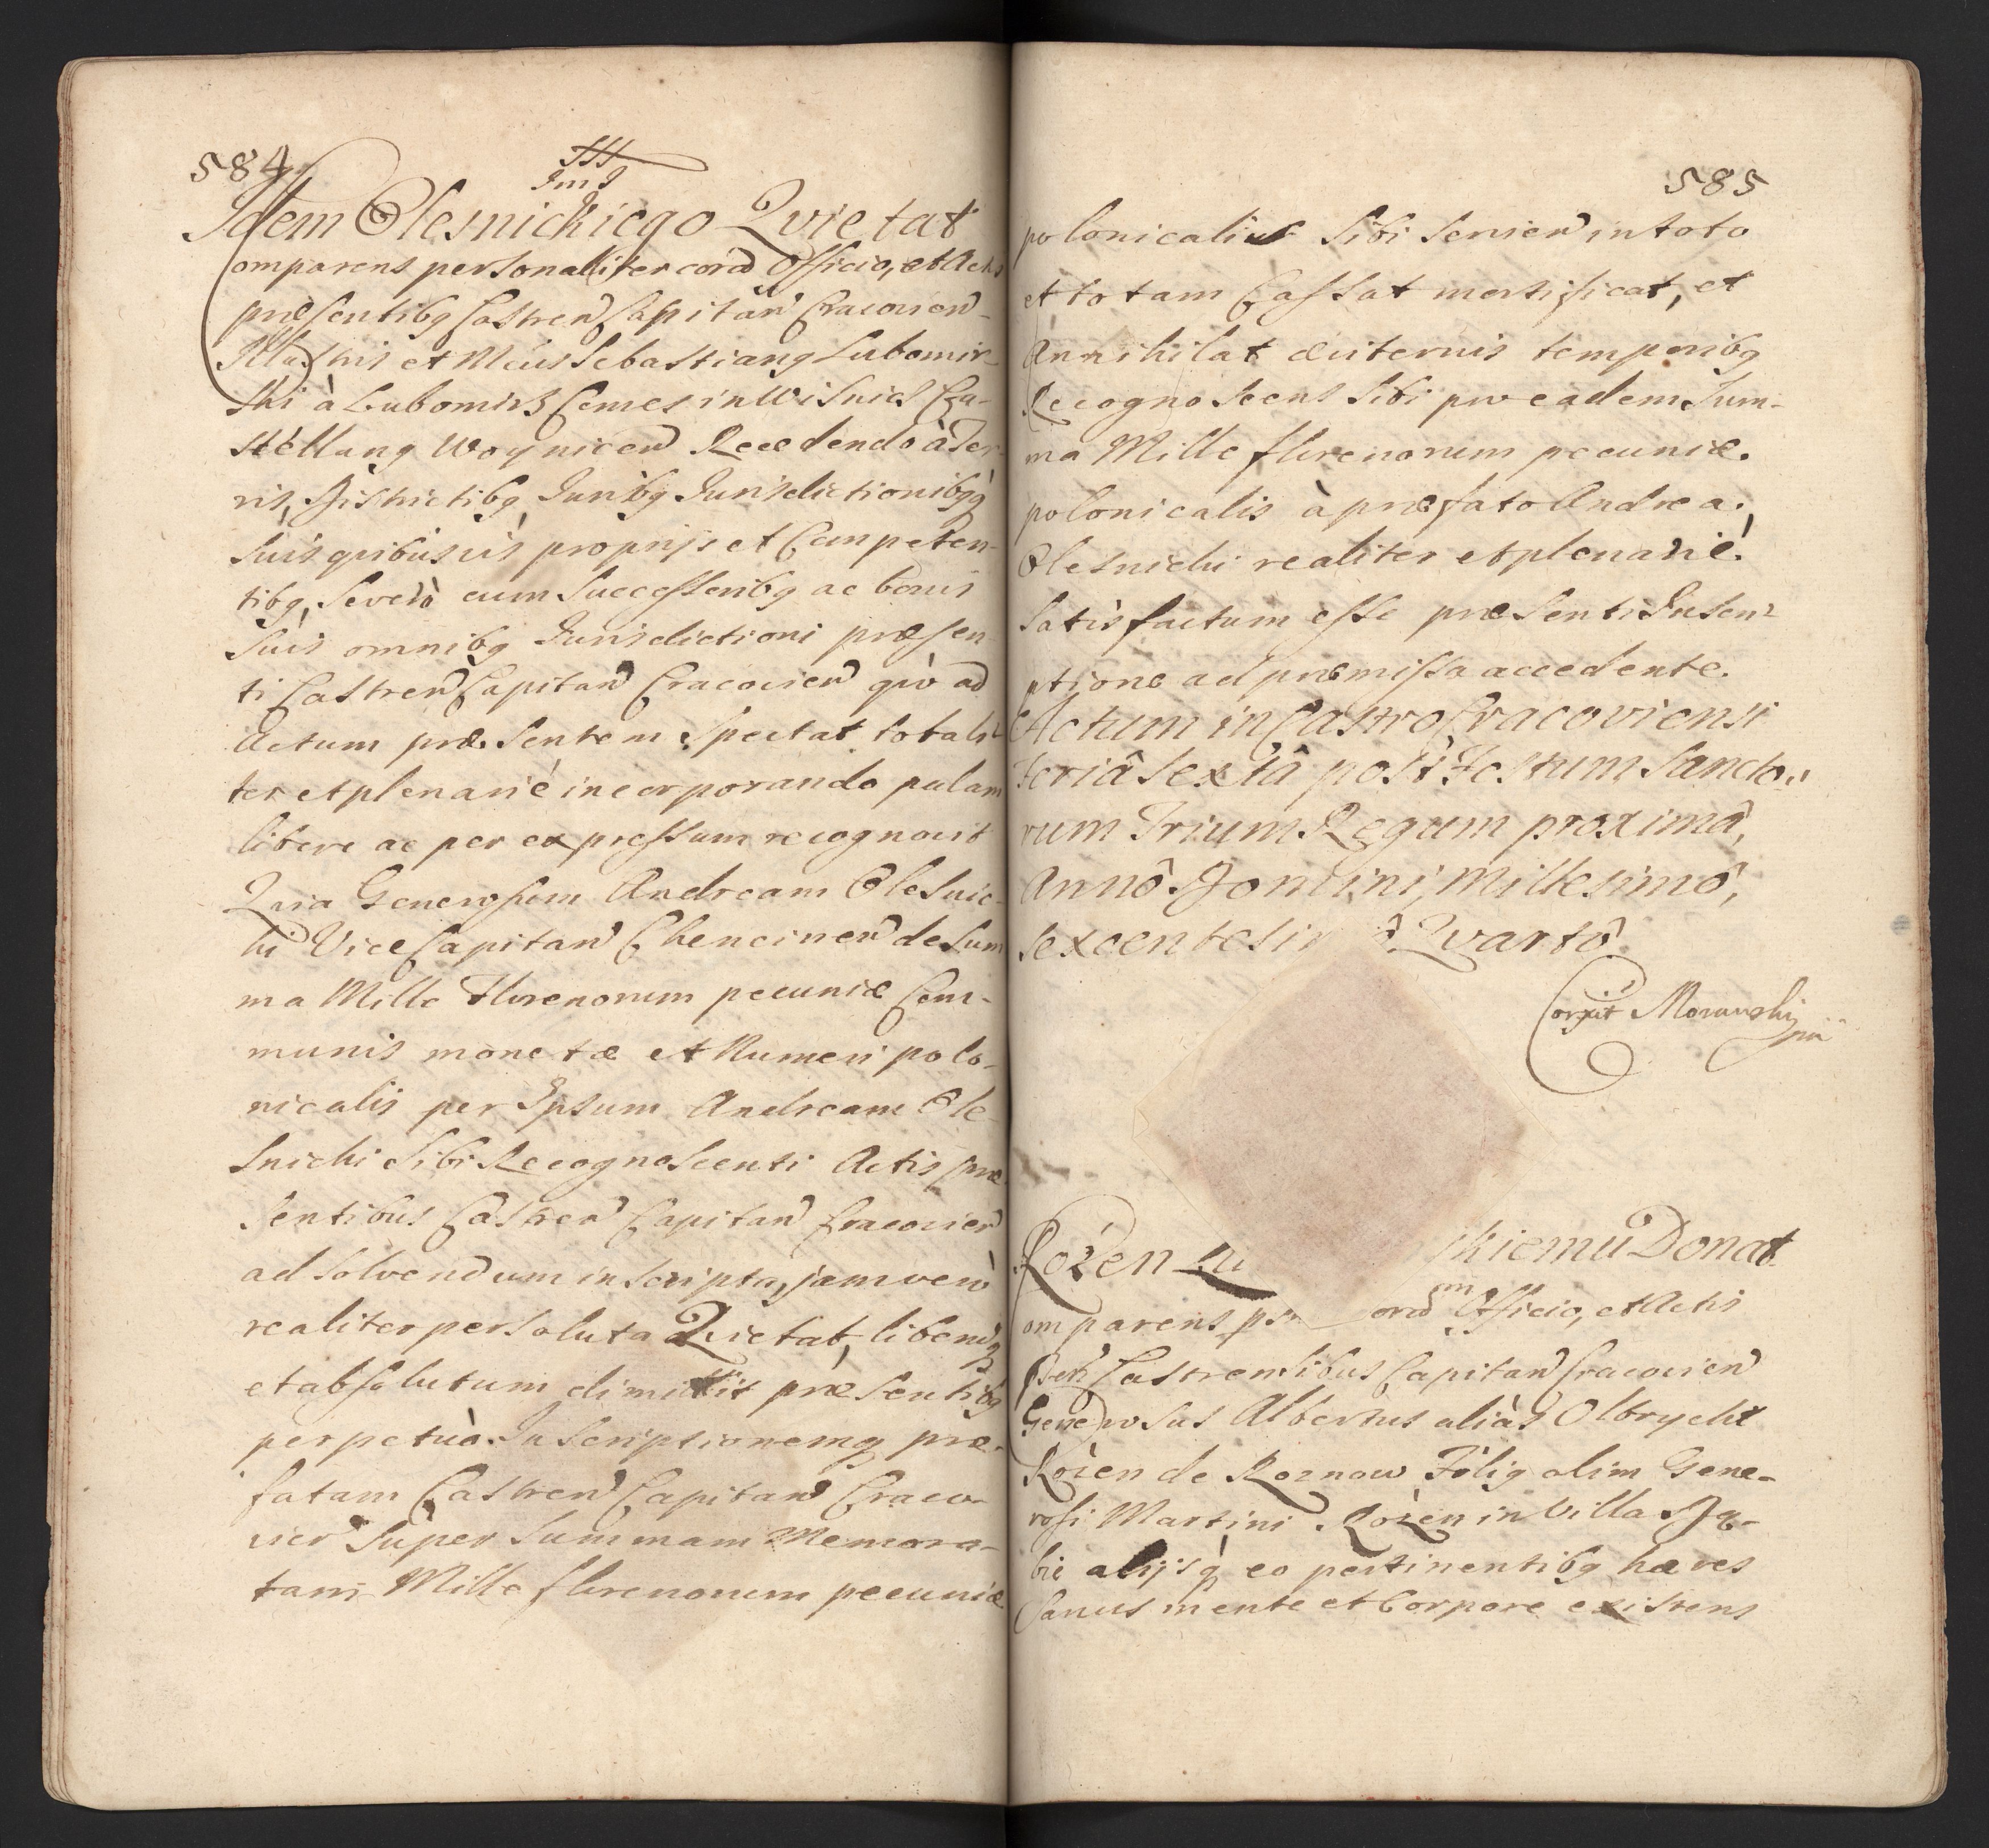 584
Idem Olesnickiego Qvietat
Comparens personaliter corā Officio, et Actis
præsentibq Castren Capitan Cracovien
Illustris et Mcus Sebastianq Lubomir-
ski à Lubomirz Comes in Wisnicz Ca-
stellanq Woynicen Recedendo à Ter-
ris, Districtibq, Juribq Jurisdictionibqq
suis quibusvis proprijs et Competen-
tibq, Severò cum Successoribq ac bonis
suis omnibq Jurisdictioni præsen-
ti Castren Capitan Cracovien qvò ad
Actum præsentem spectat totali-
ter et plenariè incorporando palam
libere ac per expressum recognovit
Qvia Generosum Andream Olesnic-
ki Vice Capitan Chencinen de Sum
ma Mille Florenorum pecuniæ Com-
munis monetæ et Numeri polo-
nicalis per Ipsum Andream Ole-
snicki sibi Recognoscenti Actis præ
sentibus Castren Capitan Cracovien
ad solvendum inscripta, jam verò
realiter persoluta Qvietat, liberumq
et absolutum dimittit præsentibq
perpetuò. Inscriptionemq præ-
fatam Castren Capitan Craco-
vien super summam Memora-
tam Mille florenorum pecuniæ
585
polonicalis sibi servien in toto
et totam Cassat mortificat, et
Annihilat æviternis temporibq
Recognoscens sibi pro eadem Sum-
ma Mille florenorum pecuniæ
polonicalis à præfato Andrea
Olesnicki realiter et plenariè
satisfactum esse præsenti Inscri-
ptione ad præmissa accedente.
Actum in Castro Cracoviensi
Feriâ sextâ post Festum Sancto-
rum Trium Regum proximâ,
Annô Domini, Millesimô,
sexcentesimô Qvartô.
Corrxit Morawski
Rożen skiemu Donat
omparens corā Officio, et Actis
Castrensibus Capitan Cracovien
Generosus Albertus aliàs Olbrycht
Rożen de Roznow Filiq olim Gene-
rosi Martini Rożen in Villa Dą-
bie alijsq eo pertinentibq hæres
Sanus mente et Corpore existens